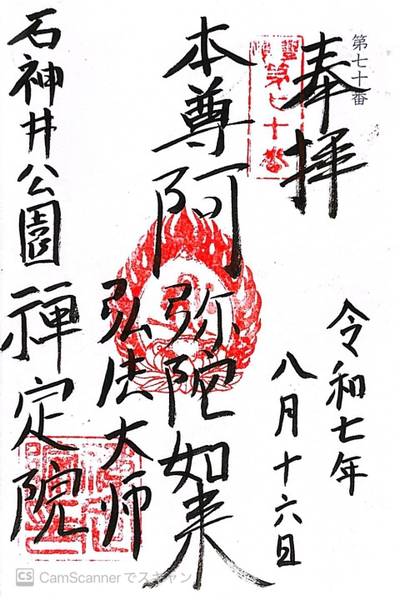 第七十番
奉拝
霊場
第七十番
令和七年
八月十六日
本尊阿弥陀如来
弘法大师
石神井公園 禅定院
CS CamScannerでスキャン